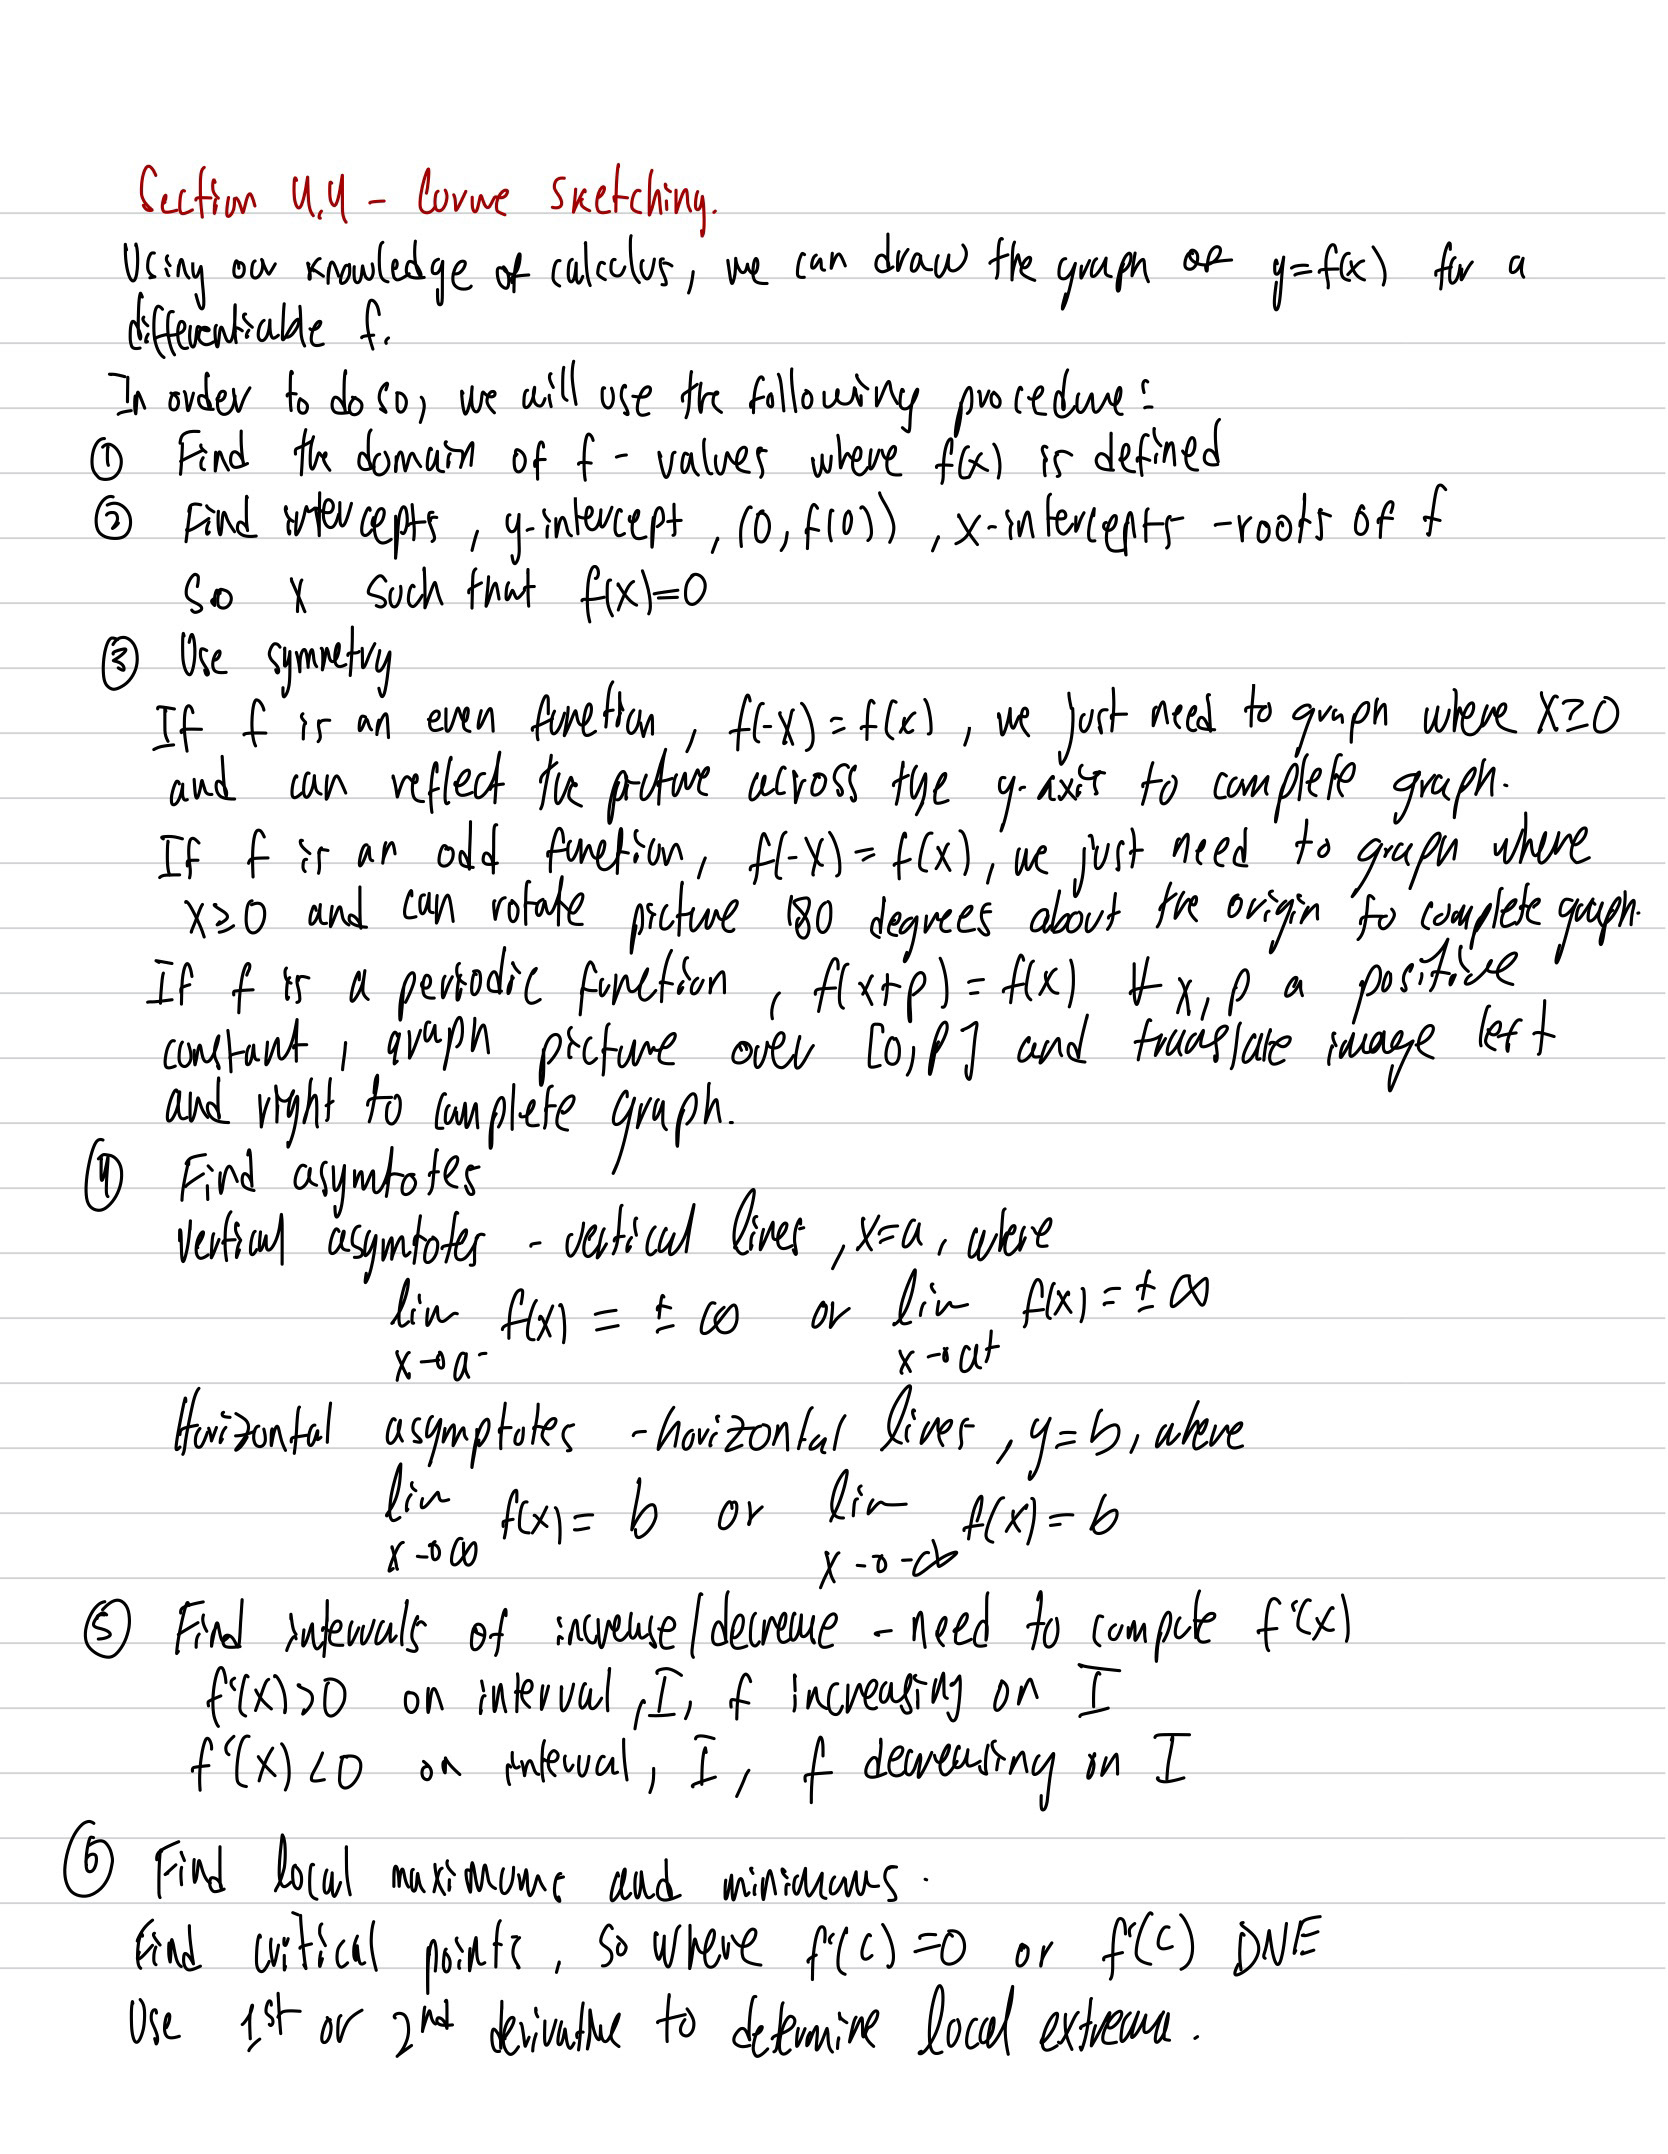 Section 4.4 - Curve Sketching.
Using our knowledge of calculus, we can draw the graph of y=f(x) for a
differentiable f.
In order to do so, we will use the following procedure:
① Find the domain of f - values where f(x) is defined
② Find intercepts, y-intercept, (0, f(0)), x-intercepts - roots of f
So x such that f(x)=0
③ Use symmetry
If f is an even function, f(-x) = f(x), we just need to graph where x≥0
and can reflect the picture across the y-axis to complete graph.
If f is an odd function, f(-x) = f(x), we just need to graph where
x≥0 and can rotate picture 180 degrees about the origin to complete graph.
If f is a periodic function, f(x+p) = f(x) ∀ x, p a positive
constant, graph picture over [0, p] and translate image left
and right to complete graph.
④ Find asymtotes
Vertical asymtotes - vertical lines, x=a, where
lim x→a⁻ f(x) = ±∞ or lim x→a⁺ f(x) = ±∞
Horizontal asymptotes - horizontal lines, y=b, where
lim x→∞ f(x) = b or lim x→-∞ f(x) = b
⑤ Find intervals of increase/decrease - need to compute f'(x)
f'(x)>0 on interval, I, f increasing on I
f'(x)<0 on interval, I, f decreasing on I
⑥ Find local maximums and minimums.
Find critical points, so where f'(c)=0 or f'(c) DNE
Use 1st or 2nd derivative to determine local extrema.